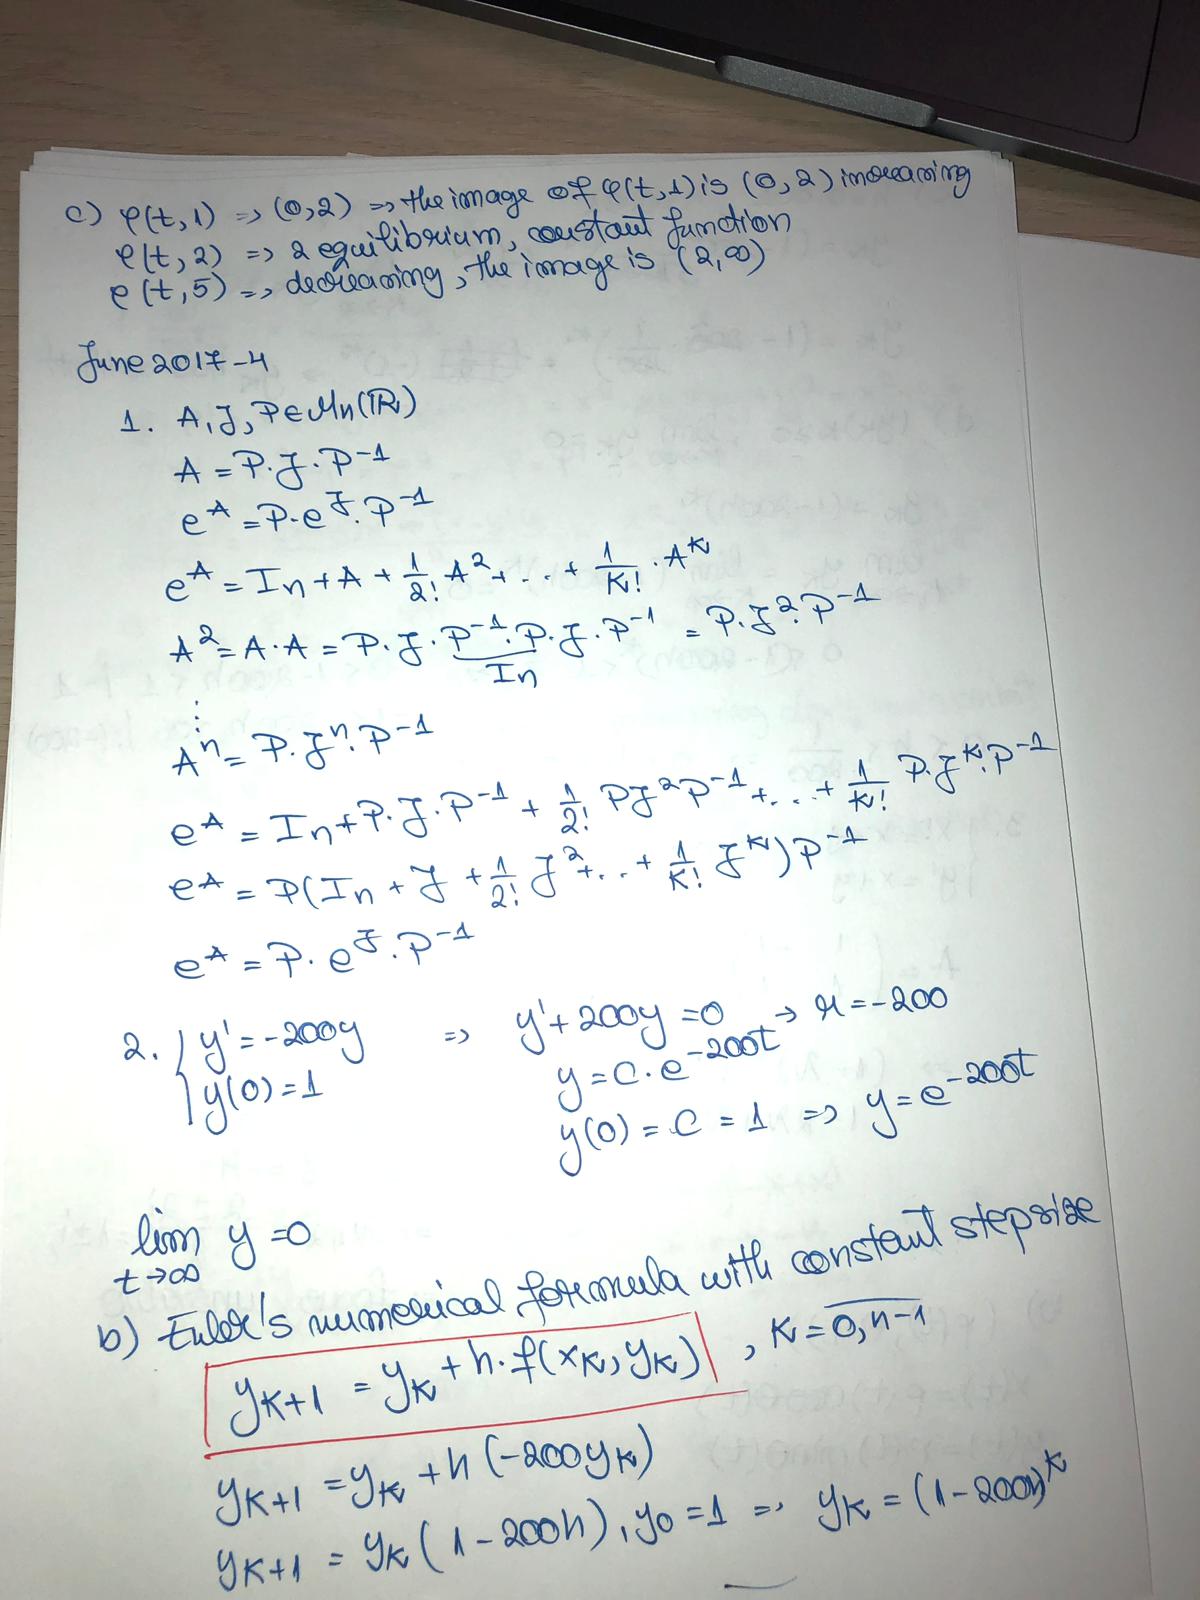 c) φ(t,1) => (0,2) => the image of φ(t,1) is (0,2) increasing
φ(t,2) => 2 equilibrium, constant function
φ(t,5) => decreasing, the image is (2,∞)
June 2017-4
1. A, J, P ∈ Mn(ℝ)
A = P·J·P⁻¹
e^A = P·e^J·P⁻¹
e^A = In + A + 1/2! A² + ... + 1/K! · A^K
A² = A·A = P·J·P⁻¹·P·J·P⁻¹ = P·J²·P⁻¹
In
⋮
Aⁿ = P·Jⁿ·P⁻¹
e^A = In + P·J·P⁻¹ + 1/2! PJ²P⁻¹ + ... + 1/K! P·J^K·P⁻¹
e^A = P(In + J + 1/2! J² + ... + 1/K! J^K)P⁻¹
e^A = P·e^J·P⁻¹
2. { y' = -200y => y' + 200y = 0 → r = -200
y(0) = 1 y = C·e^-200t
y(0) = C = 1 => y = e^-200t
lim y = 0
t→∞
b) Euler's numerical formula with constant stepsize
yK+1 = yK + h·f(xK, yK) , K = 0,n-1
yK+1 = yK + h(-200yK)
yK+1 = yK(1-200h), y0 = 1 => yK = (1-200h)^K